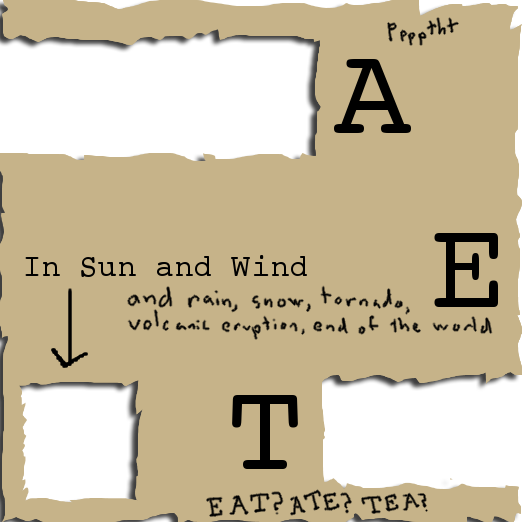 Pppptht
A
E
In Sun and Wind
and rain, snow, tornado,
volcanic eruption, end of the world
T
EAT? ATE? TEA?